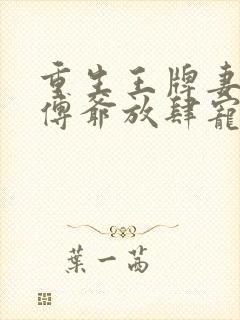 重生王牌妻
傅爺放肆寵
葉一茜